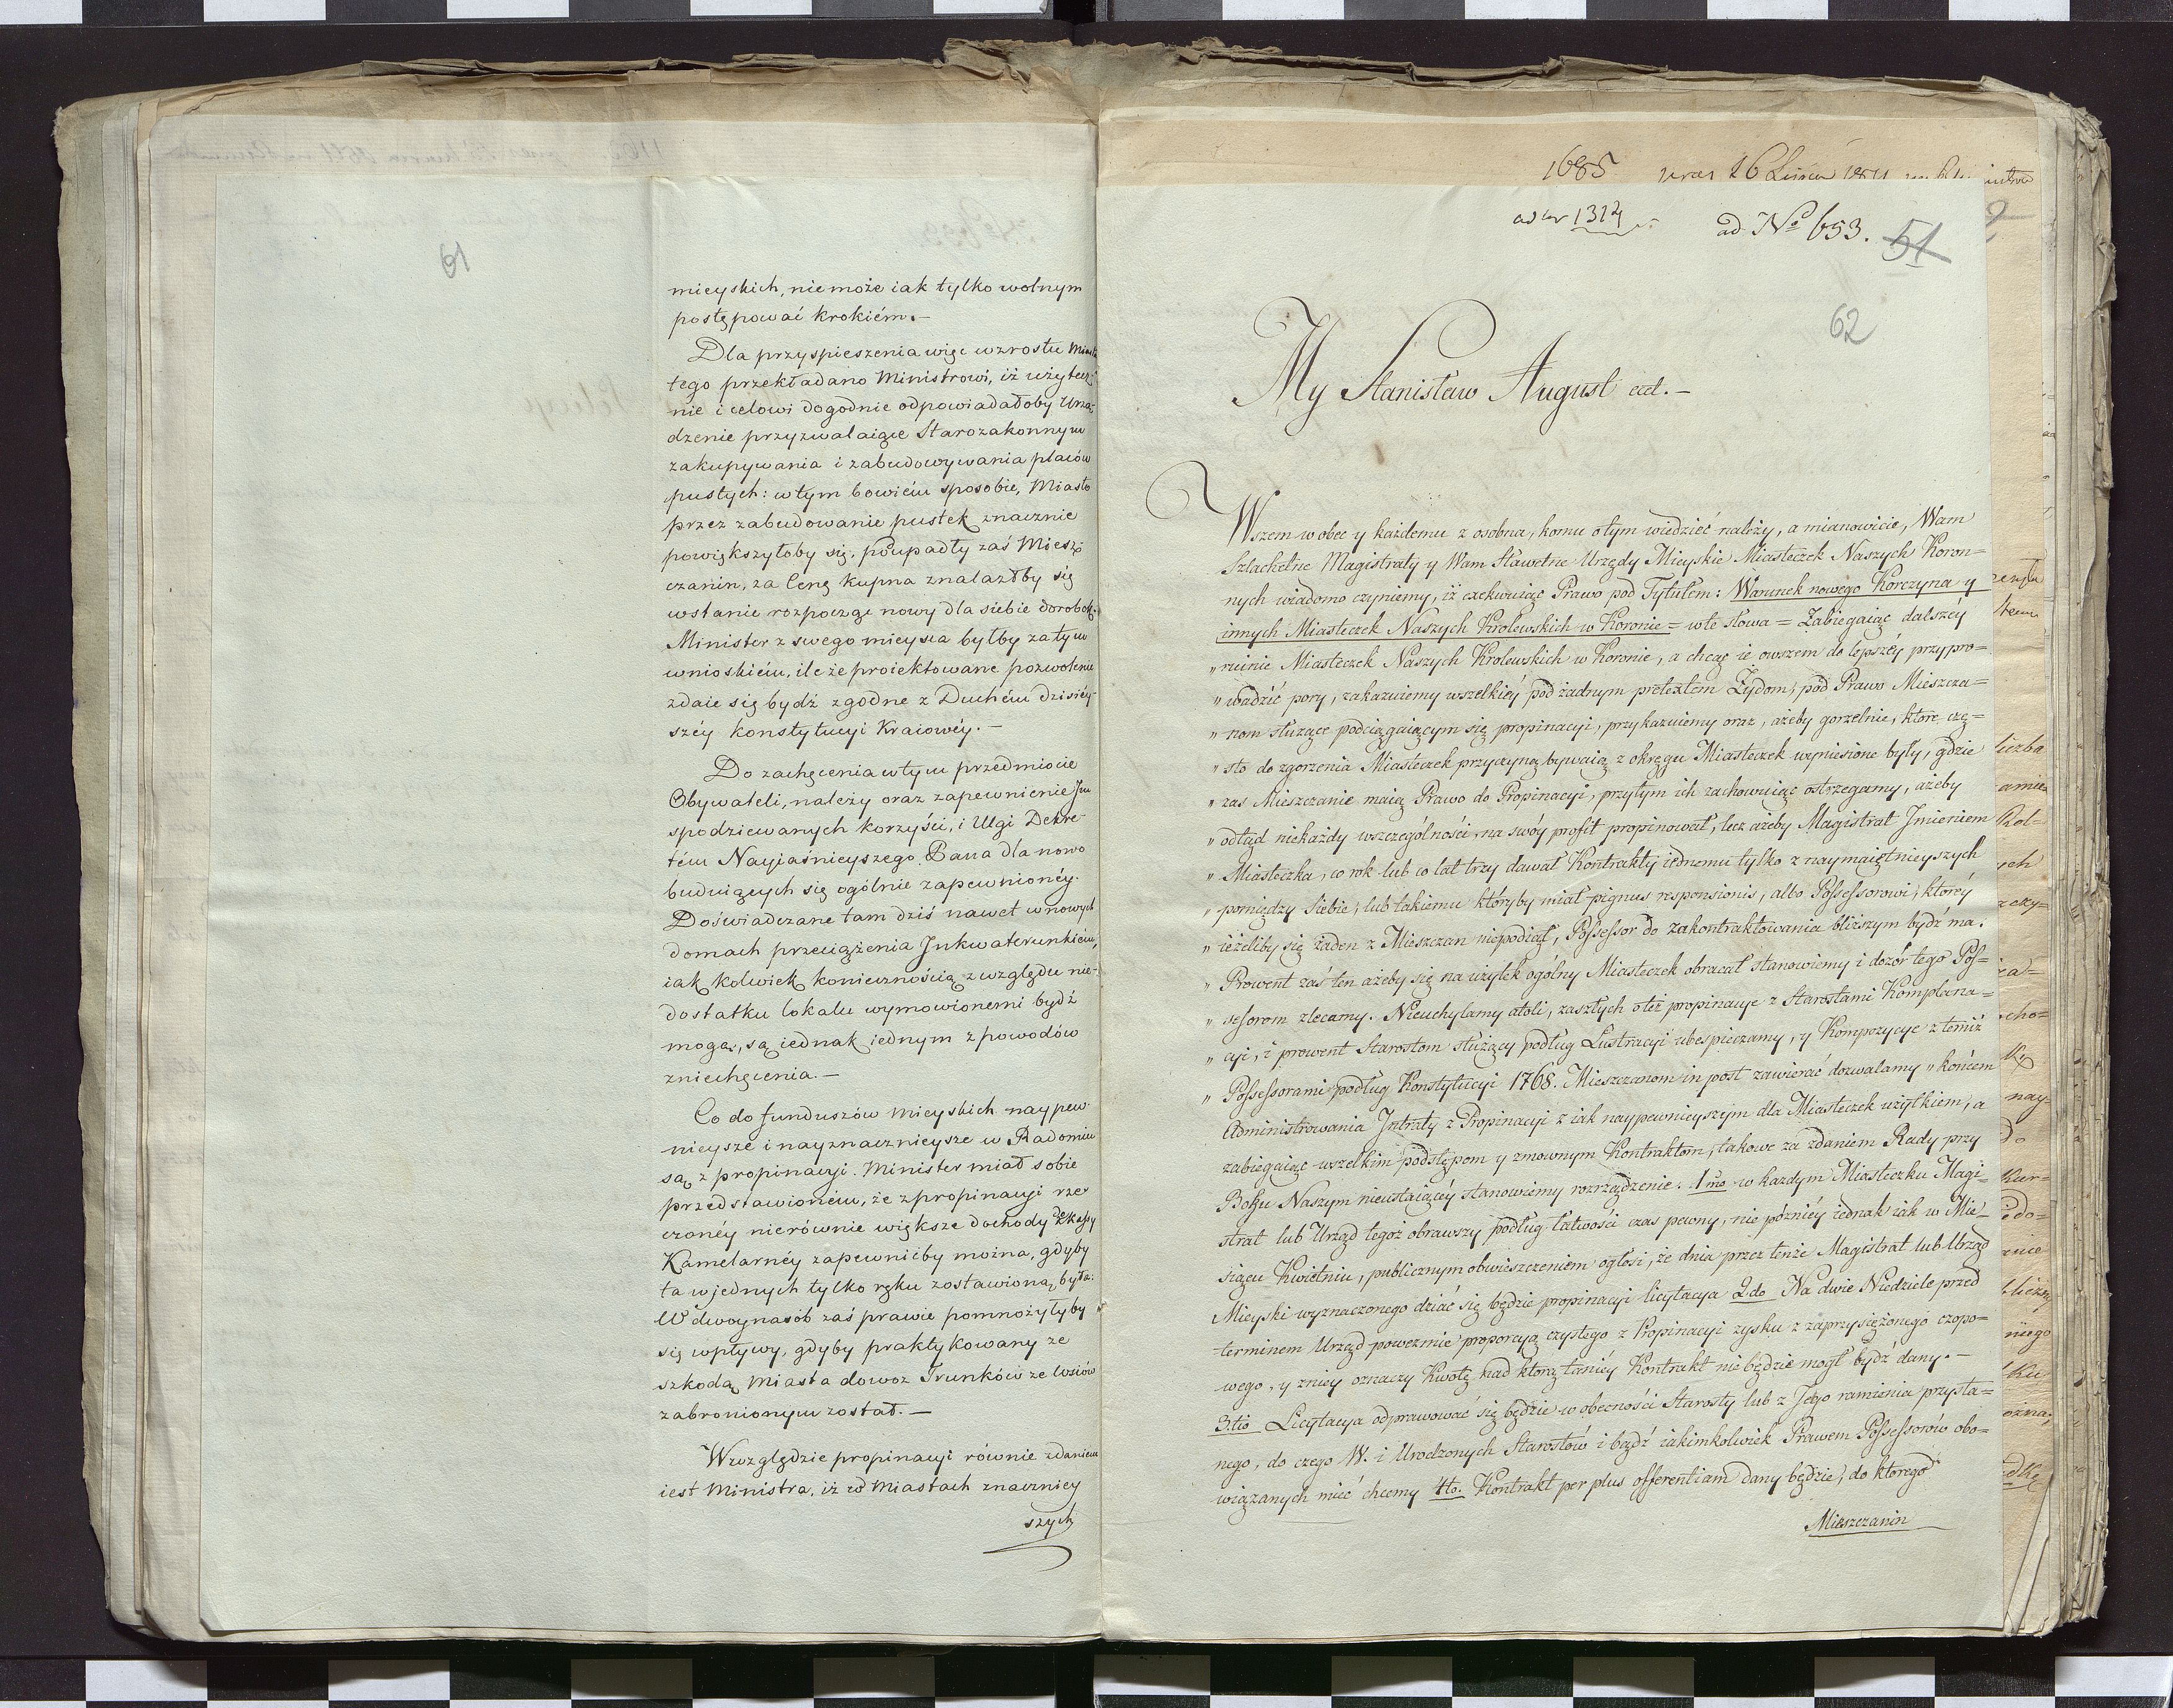 mieyskich, nie może iak tylko wolnym
postępować krokiém.—
Dla przyspieszenia więc wzrostu Miasta
tego przekładano Ministrowi, iż użytecz-
nie i celowi dogodnie odpowiadałoby Urzą-
dzenie przyzwalaiące Starozakonnym
zakupywania i zabudowywania placów
pustych: w tym bowiém sposobie, Miasto
przez zabudowanie pustek znacznie
powiększyłoby się, podupadły zaś Miesz-
czanin, za Cenę kupna znalazłby się
w stanie rozpocząć nowy dla siebie dorobek.
Minister z swego mieysca byłby za tym
wnioskiém, ile że proiektowane pozwolenie
zdaie się bydź zgodne z Duchém dzisiéy-
széy konstytucyi Kraiowéy.—
Do zachęcenia w tym przedmiocie
Obywateli, należy oraz zapewnienie Im
spodziewanych korzyści, i Ulgi Dekre-
tém Nayiaśnieyszego Pana dla nowo
buduiących się ogólnie zapewnionéy.
Doświadczane tam dziś nawet w nowych
domach przeciążenia Inkwaterunkiém,
iak kolwiek koniecznością z względu nie-
dostatku lokalu wymowionemi bydź
mogą, są iednak iednym z powodów
zniechęcenia.—
Co do funduszów mieyskich naypew-
nieysze i nayznacznieysze w Radomiu
są z propinacyi. Minister miał sobie
przedstawioném, że z propinacyi rze-
czonéy nierównie większe dochody Kassy
Kamelarnéy zapewnićby można, gdyby
ta w jednych tylko ręku zostawioną była.
W dwoynasób zaś prawie pomnożyłyby
się wpływy, gdyby praktykowany ze
szkodą Miasta dowoz Trunków ze wsiów
zabronionym został.—
W względzie propinacyi równie zdaniem
iest Ministra, iż w Miastach znaczniey
szych
61
1685 26
ad Nr 1314
ad No 653.
51
62
My Stanisław August etct.—
Wszem wobec y każdemu z osobna, komu o tym wiedzieć należy, a mianowicie, Wam
Szlachetne Magistraty y Wam Sławetne Urzędy Mieyskie Miasteczek Naszych Koron=
nych wiadomo czyniemy, iż exekwuiąc Prawo pod Tytułem: Warunek nowego Korczyna y
innych Miasteczek Naszych Krolewskich w Koronie = w te słowa = Zabiegaiąc dalszéy
„ ruinie Miasteczek Naszych Krolewskich w Koronie, a chcąc ie owszem do lepszéy przypro=
„ wadzić pory, zakazuiemy wszelkiéy pod żadnym pretextem Żydom, pod Prawo Mieszcza=
„ nom służące podciągaiącym się propinacyi, przykazuiemy oraz, ażeby gorzelnie, które czę=
„ sto do zgorzenia Miasteczek przyczyną bywaią z okręgu Miasteczek wyniesione były, gdzie
„ zas Mieszczanie maią Prawo do Propinacyi, przytym ich zachowuiąc ostrzegamy, ażeby
„ odtąd niekażdy wszczególności na swóy profit propinował, lecz ażeby Magistrat Imieniem
„ Miasteczka, co rok lub co lat trzy dawał Kontrakty iednemu tylko z naymaiętnieyszych
„ pomiędzy siebie, lub takiemu któryby miał pignus responsionis, albo Possessorowi, któréy
„ ieżeliby się żaden z Mieszczan niepodiął, Possessor do zakontraktowania bliższym bydź ma.
„ Prowent zaś ten ażeby się na użytek ogólny Miasteczek obracał stanowiemy i dozór tego Pos=
„ sessorom zlecamy. Nieuchylamy atoli, zaszłych o też propinacye z Starostami Komplana=
„ cyi, i prowent Starostom służący podług Lustracyi ubespieczamy, y Kompozycye z temiż
„ Possessorami podług Konstytucyi 1768. Mieszczanom in post zawierać dozwalamy „ końcem
Administrowania Intraty z Propinacyi z iak naypewnieyszym dla Miasteczek użytkiem, a
zabiegaiąc wszelkim podstępom y zmownym Kontraktom, takowe za zdaniem Rady przy
Boku Naszym nieustaiącéy stanowiemy rozrządzenie. 1mo w każdym Miasteczku Magi-
strat lub Urząd tegoż obrawszy podług łatwości czas pewny, nie pózniéy iednak iak w Mie-
siącu Kwietniu, publicznym obwieszczeniem ogłosi, że dnia przez tenże Magistrat lub Urząd
Mieyski wyznaczonego dziać się będzie propinacyi licytacya 2do Na dwie Niedziele przed
terminem Urząd powezmie proporcyą czystego z Propinacyi zysku z zaprzysiężonego czopo=
wego, y zniey oznaczy Kwotę nad którą taniéy Kontrakt nie będzie mogł bydź dany.—
3tio Licytacya odprawować się będzie w obecności Starosty lub z Jego ramienia przysta=
nego, do czego W. i Urodzonych Starostów i bądź iakimkolwiek Prawem Possessorów obo=
wiązanych mieć chcemy 4to. Kontrakt per plus offerentiam dany będzie, do którego
Mieszczanin